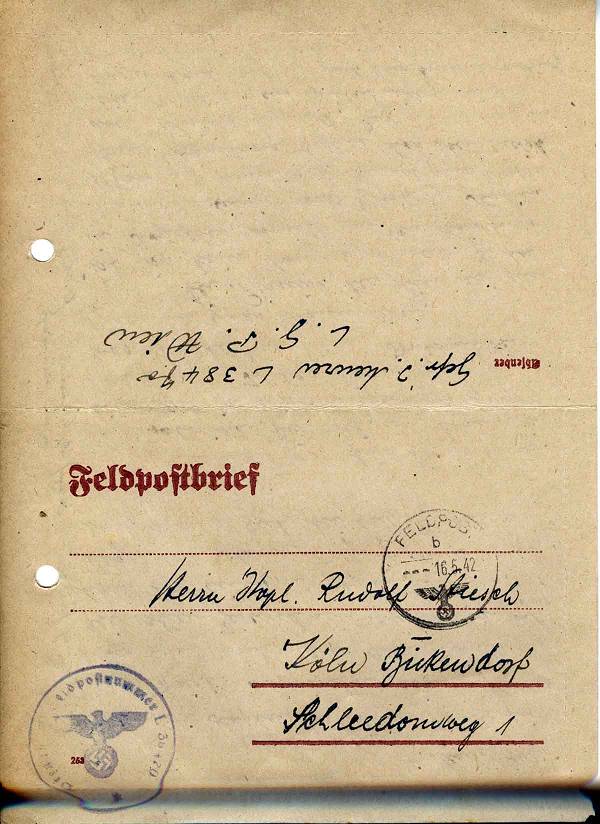 Absender
Gefr. J. Meurer L 38470
L. G. P. A. Wien
Feldpostbrief
FELDPOST
b
--- 16.5.42
Herrn Kapl. Rudolf
Köln Bickendorf
Schleedornweg 1
Feldpostnummer L
253